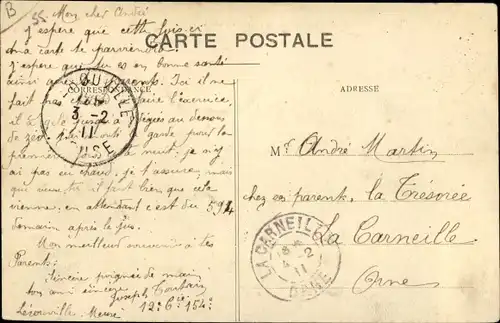 Mon cher André
J'espère que cette fois-ci
ma carte te parviendra.
J'espère que tu es en bonne santé
ainsi que tes parents. Ici il ne
fait pas chaud faire l'exercice,
il a gelé jusqu'à degrés au dessous
de zéro. J'ai monté la garde pour la
première fois nuit; je n'y
ai pas eu chaud, je t'assure, mais
que veux-tu il faut bien que cela
vienne, en attendant c'est du 594
demain après le jus.
Mon meilleur souvenir à tes
Parents.
Sincère poignée de main
ton ami
Joseph
Lérouville - Meuse 12e Cie 154e
CARTE POSTALE
CORRESPONDANCE
ADRESSE
Mr André Martin
chez ses parents, la Trésorée
La Carneille
Orne
3-2
11
MEUSE
LA CARNEILLE
4-2
11
ORNE
B